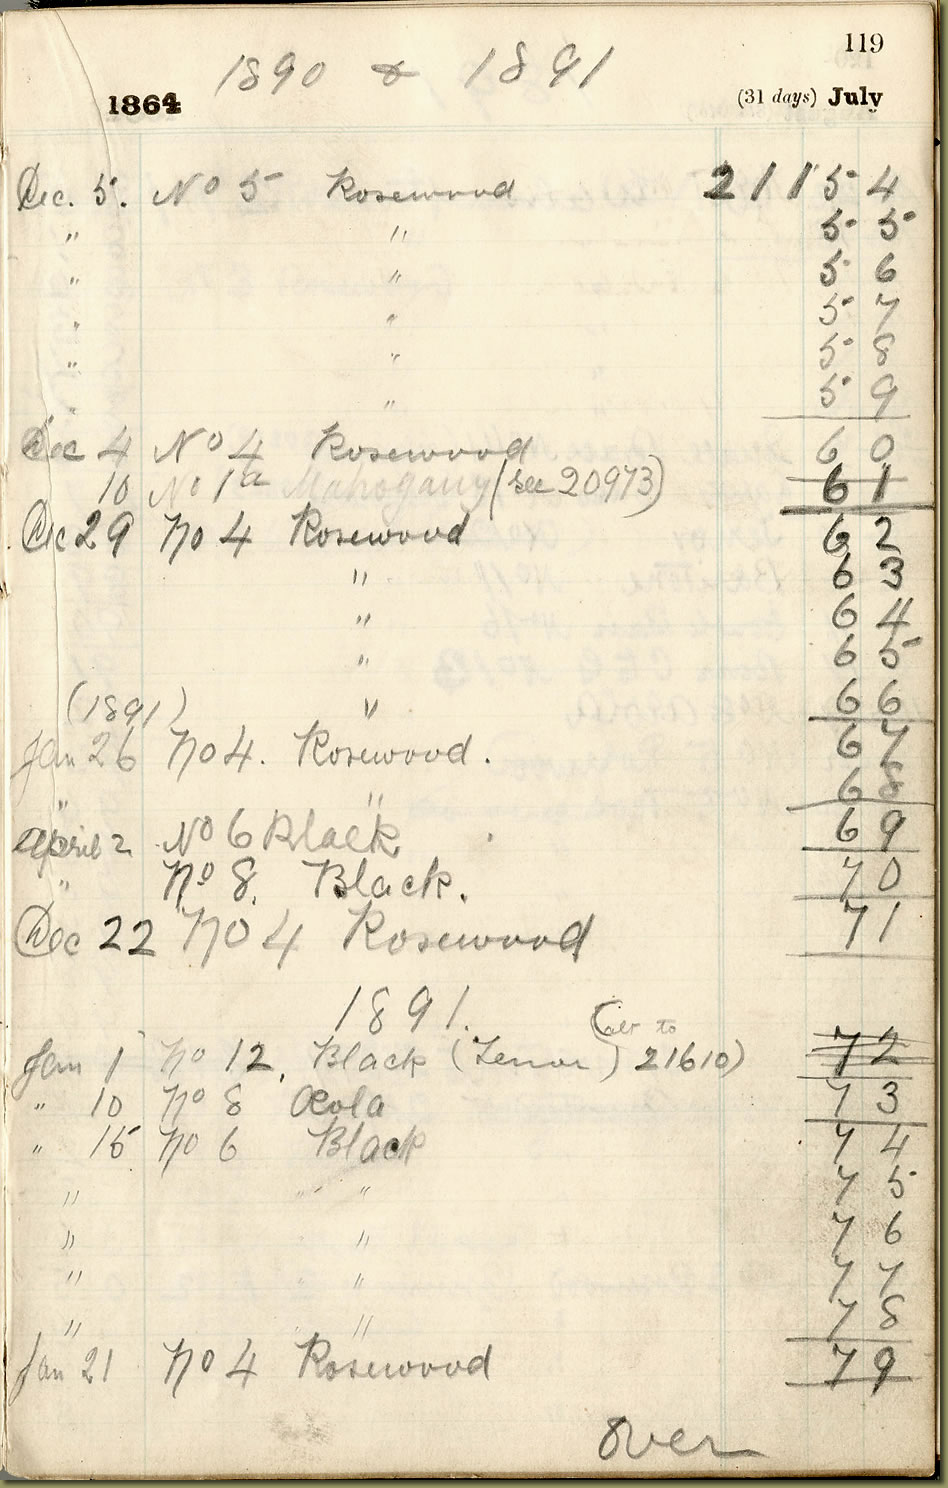 119
1890 & 1891
1864 (31 days) July
Dec. 5. No 5 Rosewood 21154
" " 55
" " 56
" " 57
" " 58
" " 59
Dec 4 No 4 Rosewood 60
10 No 1a Mahogany (see 20973) 61
Dec 29 No 4 Rosewood 62
" 63
" 64
" 65
(1891) " 66
Jan 26 No 4. Rosewood. 67
" " 68
April 2 No 6 Black 69
" No 8. Black. 70
Dec 22 No 4 Rosewood 71
1891.
(alt to
Jan 1 No 12, Black (Tenor) 21610) 72
" 10 No 8 73
" 15 No 6 Black 74
" " 75
" " 76
" " 77
" " 78
Jan 21 No 4 Rosewood 79
Over